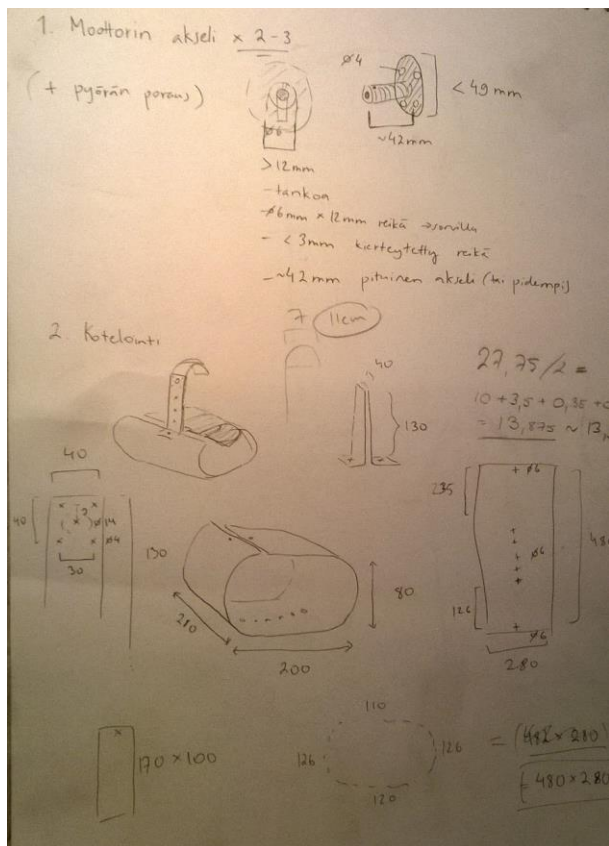 1. Moottorin akseli x 2-3
(+ pyörän poraus)
ø4
< 49 mm
~42mm
ø6
>12mm
- tankoa
- ø6mm x 12mm reikä → sorvilla
- < 3mm kierteytetty reikä
- ~42 mm pituinen akseli (tai pidempi)
2. Kotelointi
7
11cm
40
130
27,75/2 =
10 + 3,5 + 0,35 +
= 13,875 ~ 13
40
40
ø14
ø4
30
130
280
200
80
235
ø6
ø6
126
ø6
280
480
170 x 100
110
126
126
120
= (482 x 280)
(480 x 280